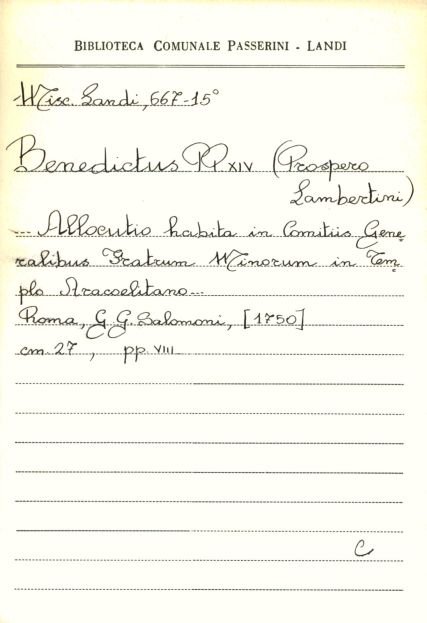 BIBLIOTECA COMUNALE PASSERINI - LANDI
Misc. Landi, 667-15°
Benedictus PP XIV (Prospero
Lambertini)
... Allocutio habita in Comitiis Gene-
ralibus Fratrum Minorum in Tem-
plo Aracoelitano...
Roma, G. G. Salomoni, [1750]
cm. 27, pp. VIII
C